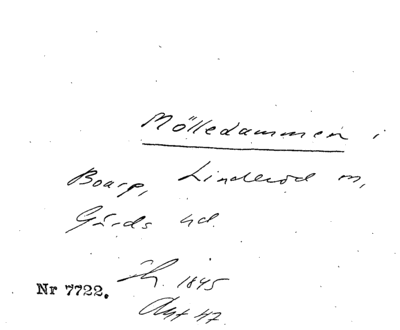 Mölledammen i
Boarp, Linderöd sn,
Gärds hd.
1845
Nr 7722.
47